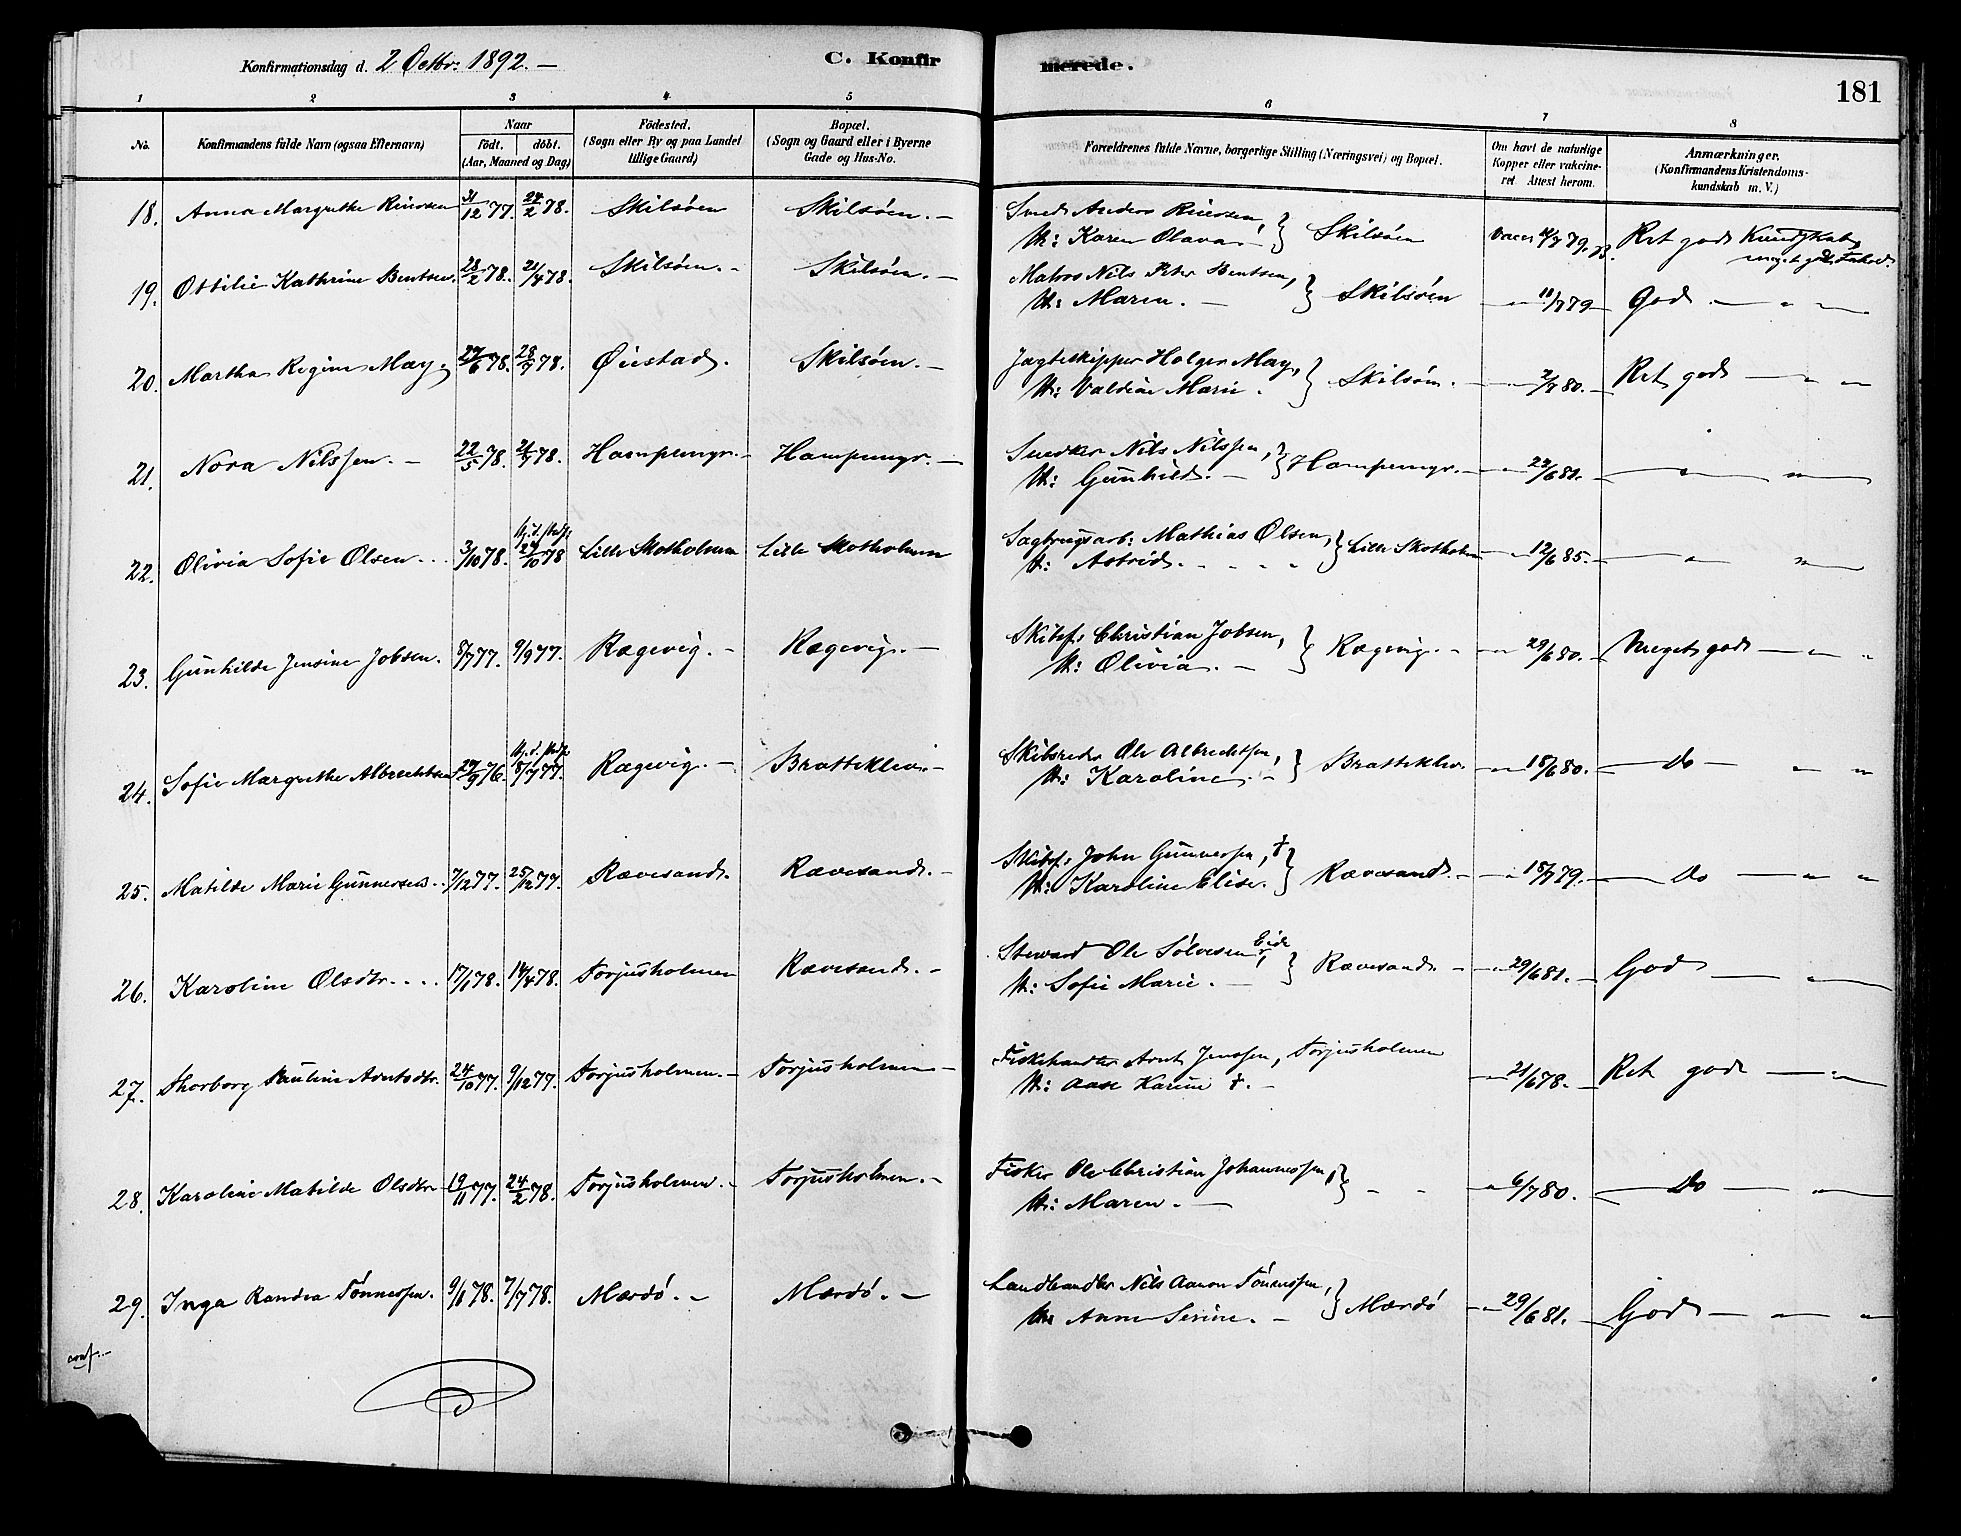 Konfirmationsdag d. 2 Octbr: 1892. –
C. Konfirmerede.
181
1 2 3 4 5 6 7 8
No. Konfirmandens fulde Navn (ogsaa Efternavn) Naar födt. döbt. (Aar, Maaned og Dag) Födested. (Sogn eller By og paa Landet tillige Gaard) Bopæl. (Sogn og Gaard eller i Byerne Gade og Hus-No. Forældrenes fulde Navne, borgerlige Stilling (Næringsvei) og Bopæl. Om havt de naturlige Kopper eller vakcineret Attest herom. Anmærkninger. (Konfirmandens Kristendomskundskab m. V.)
18. Anna Margrethe 31/12 77. 24/2 78. Skilsöen Skilsöen. – Smed Anders
H: Karen Olava } Skilsöen 79. Ret god Kundskab
meget god Forhold.
19. Ottilie Kathrine Bentsen. 28/2 78. 21/4 78. Skilsöen. – Skilsöen. – Matros Nils Peter Bentsen,
H: Maren. – } Skilsöen – " – 11/7 79 God. – " "
20. Martha Regine May. 27/6 78. 28/7 78. Øiestad. Skilsöen. – Jagteskipper Holger May,
H: Valdine Marie. } Skilsöen. – " – 2/7 80. – Ret god – " "
21. Nora Nilssen. – 22/5 78. 78. Hampungr. – Hampungr. – Snedker Nils Nilssen,
H: Gunhild. – } Hampungr. – " – /6 81. – " "
22. Olivia Sofie Olsen 3/10 78. 27/10 78 Lille Skotholmen Lille Skotholmen Sagbrugsarb: Mathias Olsen,
H: Astrid. } Lille Skotholm – " – 12/6 85. – " "
23. Gunhilde Jensine Jobsen. 8/7 77. 9/9 77. Rægevig. – Rægevig. – Skibsf: Christian Jobsen,
H: Olivia. – } Rægevig. – " – 29/6 80. – Meget god – " "
24. Sofie Margrethe Albrechtsen 29/9 76. 8/7 77. Rægevig. – Bratteklev. – Skibsreder Ole Albrechtsen,
H: Karoline. – } Bratteklev. – " – 18/6 80. – Do – " "
25. Matilde Marie Gunnersen. 7/12 77. 25/12 77. Rævesand. Rævesand. – Skibsf: John Gunnersen, †
H: Karoline Elise. } Rævesand. – " – 18/7 79. – Do – " "
26. Karoline Olsdtr. 17/1 78. 14/4 78. Torjusholmen Rævesand. – Steward Ole Sölvesen Eide,
H: Sofie Marie. – } Rævesand. – " – 29/6 81. – God – "
27. Thorborg Pauline Arntsdtr. 24/10 77. 9/12 77. Torjusholmen. – Torjusholmen – Fiskehandler Arnt Jenssen, Torjusholmen
H: Aase Karine †. – – " – 21/6 78. – Ret god – "
28. Karoline Matilde Olsdtr 19/11 77. 24/2 78. Torjusholmen. – Torjusholmen. – Fisker Ole Christian Johannessen,
H: Maren. – } – " – 6/7 80. – Do – "
29. Inga Randea Tönnessen. 9/1 78. 7/7 78. Mærdö. – Mærdö. – Landhandler Nils Aanon Tönnessen,
H: Anne Serine. – } Mærdö – " – 29/6 81. – God – " "
conf. –